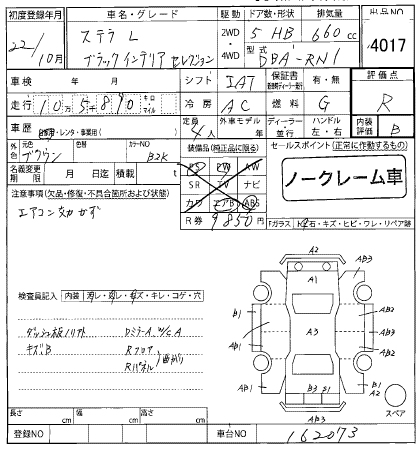 初度登録年月 車名・グレード 駆動 ドア数・形状 排気量 出品NO
22/10月 ステラ L ブラックインテリアセレクション 2WD 4WD 5 HB 660cc 4017
型式 DBA-RN1
車検 年 月 シフト IAT 保証書 有・無 評価点
走行 10万5千890 キロ マイル 冷房 AC 燃料 G R
車歴 自家用・レンタ・事業用( ) 定員 4人 外車モデル年 ディーラー 並行 ハンドル 左・右 内装評価 B
外色 元色 ブラウン 色替 カラーNO B2K 装備品(純正品に限る) セールスポイント(正常に動作するもの)
名義変更期限 月 日迄 積載 t PS PW AW ノークレーム車
注意事項(欠品・修復・不具合箇所および状態) SR TV ナビ
エアコン効かず カワ エアB ABS
R券 9850円 Fガラス
石・キズ・ヒビ・ワレ・リペア跡
A2
AB3
A1
検査員記入 内装 キレ・コゲ・穴
B1 AB2
ダッシュ板ノリアト DミラーA
A3
キズ、B Rフロア
AB1 AB2
Rパネル 曲がり
B1
B3 B1 A2
AB3
スペア
長さ cm 幅 cm 高さ cm
登録NO 車台NO 162073